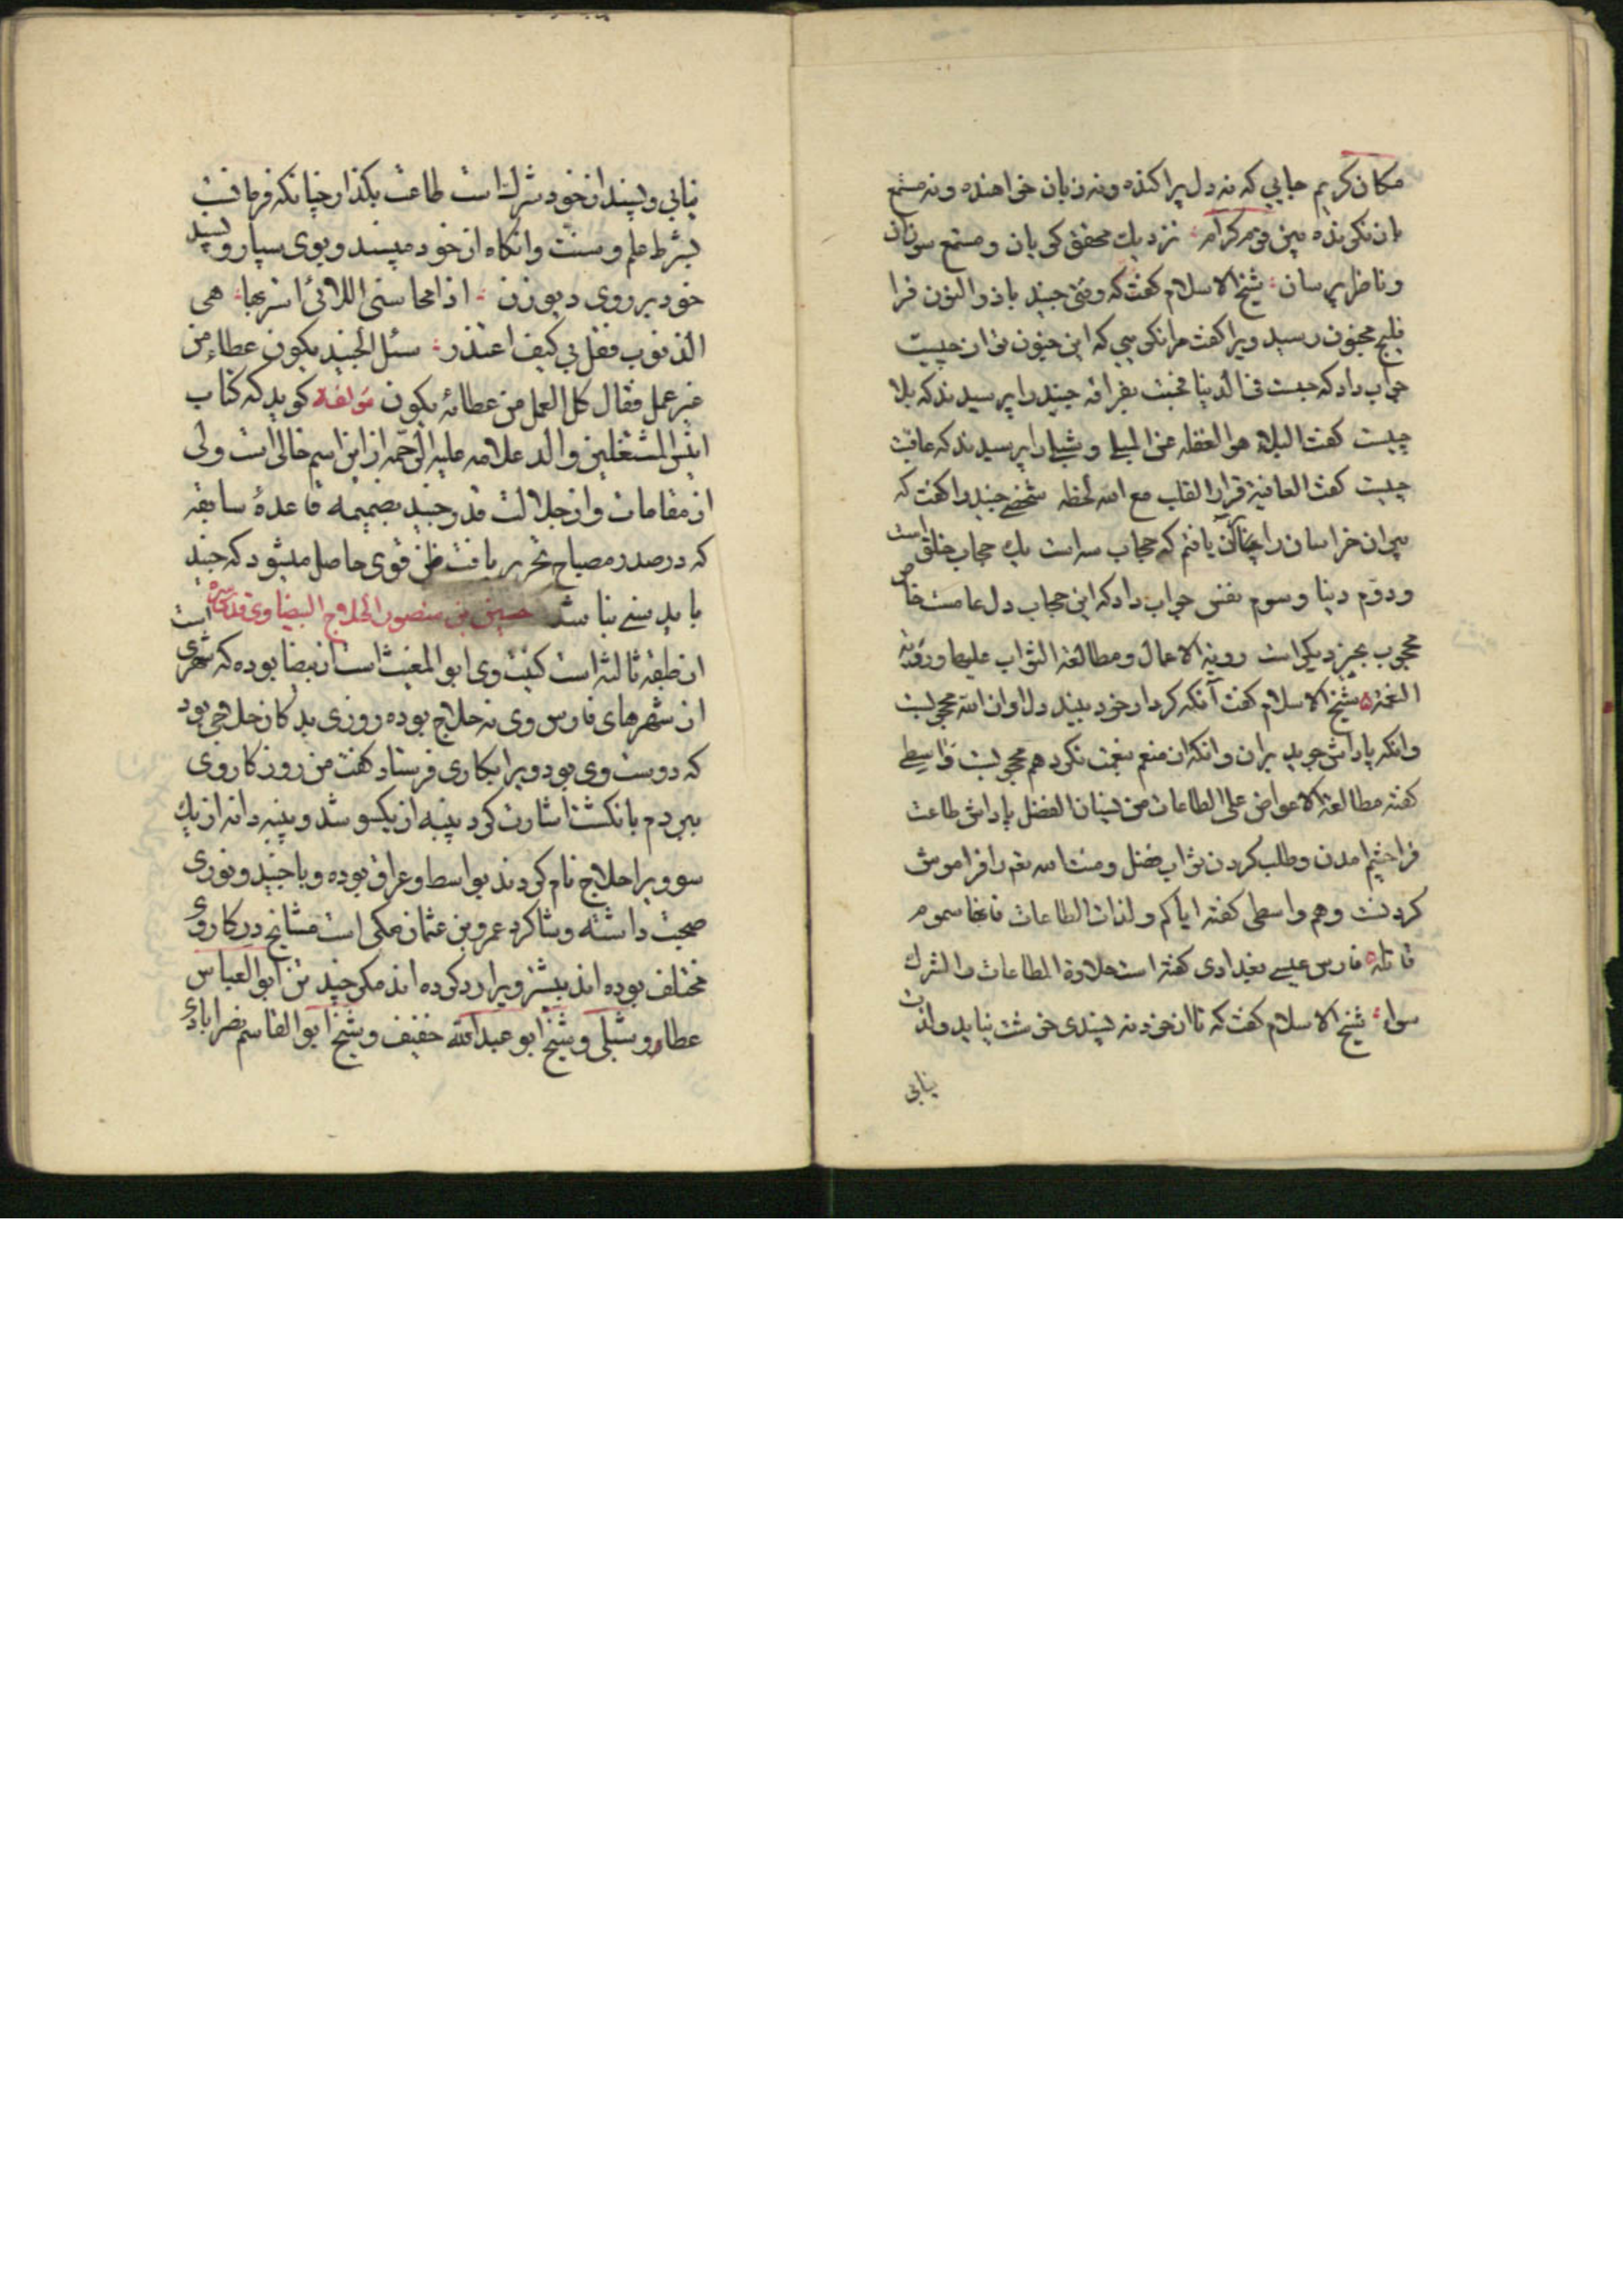 مکان کریم جایی که نه دل پراکنده و نه زبان خواهنده و نه مستمع
نزدیک محقق کی یان و مستمع سوزان
و ناظر پرسان شیخ الاسلام گفت که وقتی جنید باذوالنون فرا
مجنون رسید ویرا گفت مرا نگویی که این جنون تو از چیست
جواب داد که حبست فی الدنیا فجننت بفراقه جنید را پرسیدند که بلا
چیست گفت البلاء هو الغفله عن المبلی و شبلی را پرسیدند که عافیت
چیست گفت العافیة قرار القلب مع الله لحظه شخصی جنید را گفت که
پیران خراسان را چنان یافتم که حجاب سه است یک حجاب خلق است
و دوّم دنیا و سوم نفس جواب داد که این حجاب دل عامست خاص
محجوب بچیز دیگر است رویة الاعمال و مطالعة الثواب علیها و رؤیة
النعمة شیخ الاسلام گفت آنکه کردار خود بیند دل او از الله محجوبست
وانکه پاداش جوید بران وانکه از منعم بنعمت نگرد هم محجوبست واسطی
گفته مطالعة الاعواض علی الطاعات من نسیان الفضل پاداش طاعت
فراچشم امدن و طلب کردن ثواب فضل و منت الله تعم را فراموش
کردنت وهم واسطی گفته ایاکم و لذات الطاعات فانها سموم
قاتله فارس عیسی بغدادی گفته است حلاوة الطاعات و الشرک
سواء شیخ الاسلام گفت که تا از خود نه پسندی خوشت نیاید و لذت
نیابی
نیابی و پسند از خود شرک است طاعت بگذار چنانکه فرمانست
بشرط علم و سنت وانگاه از خود مپسند و بوی سپار و پسند
خود بر روی دیو زن اذا محاسنی اللاتی اسر بها هی
الذنوب فقل لی کیف اعتذر سئل الجنید یکون عطاء من
غیر عمل فقال کل العمل من عطائه یکون مؤلفه گوید که کتاب
انیس المشتغلین والد علامه علیه الرحمه از این اسم خالی است ولی
از مقامات و از جلالت قدر جنید بضمیمه قاعدهٔ سابقه
که در صدر مصباح تحریر یافت ظن قوی حاصل میشود که جنید
باید سنی نباشد حسین بن منصور الحلاج البیضاوی قدس سره
از طبقه ثالثه است کنیت وی ابو المغیث است از بیضا بوده که شهری است
از شهرهای فارس وی نه حلاج بوده روزی بدکان حلاجی بود
که دوست وی بود ویرا بکاری فرستاد گفت من روزگار وی
ببردم بانگشت اشارت کرد پنبه از یکسو شد و پنبه دانه از یک
سو ویرا حلاج نام کردند بواسط و عراق بوده و با جنید و نوری
صحبت داشته و شاگرد عمرو بن عثمان مکی است مشایخ در کار وی
مختلف بوده اند بیشتر ویرا رد کرده اند مگر چند تن ابو العباس
عطا و شبلی و شیخ ابو عبدالله خفیف و شیخ ابو القاسم نصرابادی